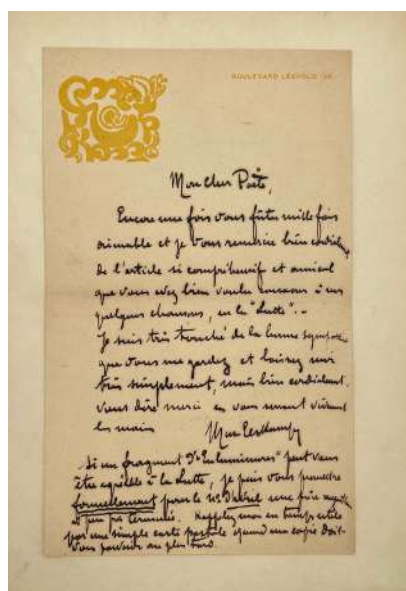 BOULEVARD LÉOPOLD
Mon cher Poète,
Encore une fois vous fûtes mille fois
aimable et je vous remercie bien cordialement
de l'article si compréhensif et amical
que vous avez bien voulu consacrer à mes
quelques chansons, en la "Lutte". -
Je suis très touché de la bonne sympathie
que vous me gardez et laissez moi
très simplement, mais bien cordialement
vous dire merci en vous serrant vivement
les mains
Max Elskamp
Si un fragment d'"Enluminures" peut vous
être agréable à la Lutte, je puis vous promettre
formellement pour le N° une
et pas terminé. Rappelez moi en temps utile
par une simple carte postale quand ma copie doit
vous parvenir au plus tard.